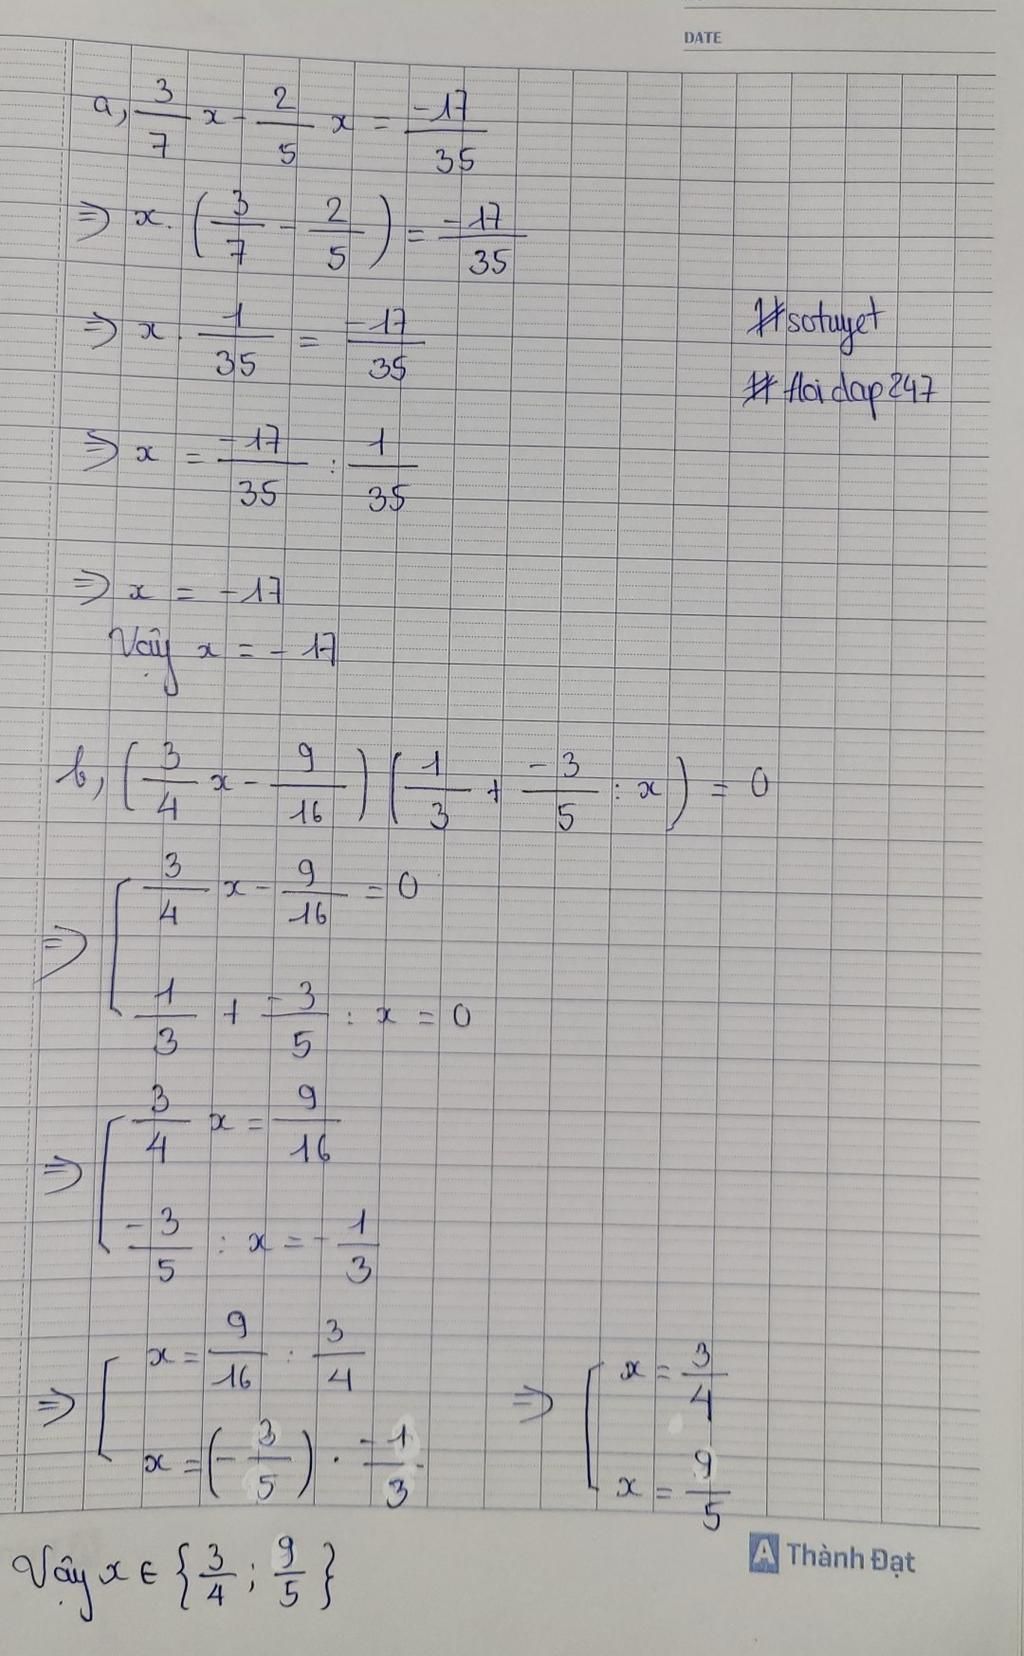 DATE
a, 3/7 x - 2/5 x = -17/35
=> x. (3/7 - 2/5) = -17/35
=> x . 1/35 = -17/35
#sotuyet
#hoidap247
=> x = -17/35 : 1/35
=> x = -17
Vậy x = -17
b, (3/4 x - 9/16) (1/3 + -3/5 : x) = 0
=> [ 3/4 x - 9/16 = 0
1/3 + -3/5 : x = 0
=> [ 3/4 x = 9/16
-3/5 : x = -1/3
=> [ x = 9/16 : 3/4 => [ x = 3/4
x = (-3/5) . -1/3 x = 9/5
Vậy x ∈ {3/4 ; 9/5}
Thành Đạt